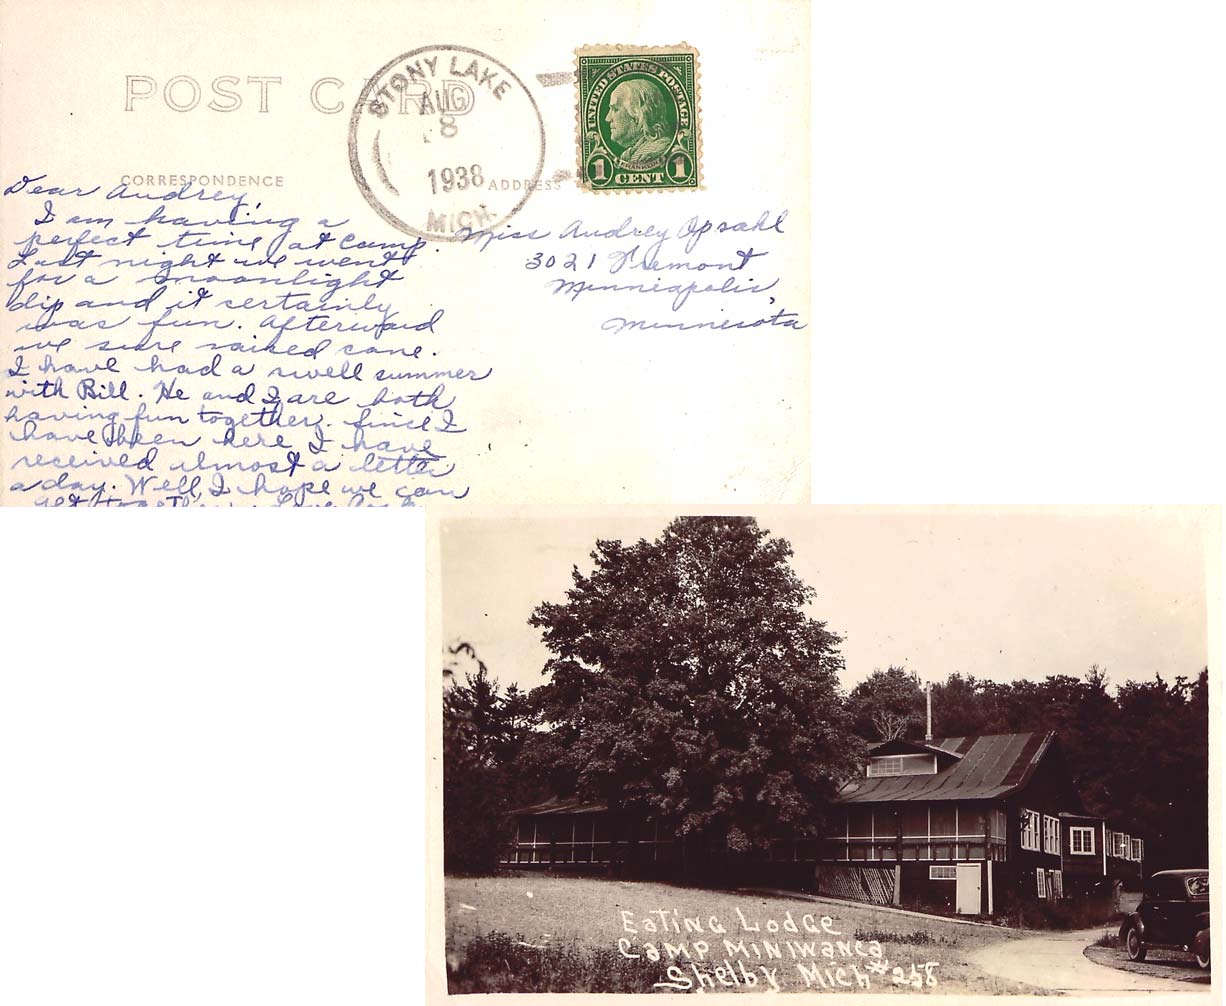 POST CARD
STONY LAKE
AUG
8
1938
MICH.
UNITED STATES POSTAGE
FRANKLIN
1 CENT 1
CORRESPONDENCE
ADDRESS
Dear Audrey,
I am having a
perfect time at camp.
Last night we went
for a moonlight
dip and it certainly
was fun. Afterward
we sure raised cane.
I have had a swell summer
with Bill. He and I are both
having fun together. Since I
have been here I have
received almost a letter
a day. Well, I hope we can
get together
Miss Audrey Opsahl
3021 Fremont
Minneapolis,
Minnesota
Eating Lodge
Camp Miniwanca
Shelby Mich #258